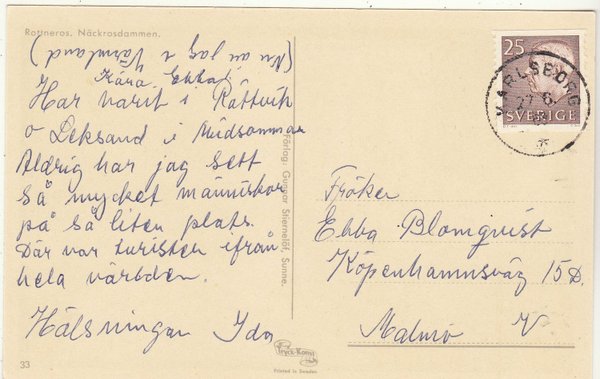 Rottneros. Näckrosdammen.
(Nu av jag i Värmland)
Kära Ebba!
Har varit i Rättvik
o Leksand i Midsommar
Aldrig har jag sett
så mycket människor
på så liten plats.
Där var turister ifrån
hela världen.
Hälsningar Ida
33
Förlag: Gunnar Stjernelöf, Sunne.
Tryck-Konst
Printed in Sweden
25
SVERIGE
KARLSBORG
Fröken
Ebba Blomqvist
Köpenhamnsväg 15 D.
Malmö V